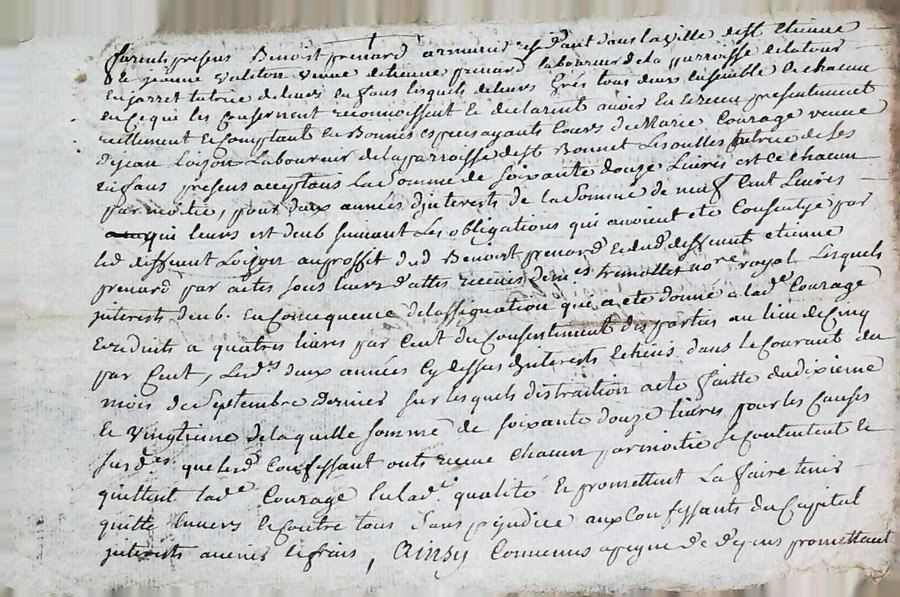 furent presens Benoist prenard armurier residant dans la ville de st Etienne
& Jeanne Valeton veuve detienne prenard laboureur de la parroisse de latour
en jarret tutrice de leurs enfans lesquels de leurs grés tous deux ensemble & chacun
en ce qui les consernent reconnoissent & declarent avoir eu & receu presentement
reellement & comptant en bonnes especes ayants cours de Marie Courage veuve
de jean Loizon Laboureur de la parroisse de st Bonnet Les oulles tutrice de ses
enfans presens acceptans La somme de soixante douze Livres est ce chacun
par moitie, pour deux années d'interests de la somme de neuf cent Livres
qui leurs est deub suivant Les obligations qui avoient eté Consentye par
led deffeunt Loizon au proffit dud Benoist prenard & dud deffeunt etienne
prenard par actes sous leurs dattes receus de me trinollet nore royal Lesquels
jnterests deub. en consequence de lassignation qui a eté donné a lade Courage
reduits a quatres livres par cent du consentement des parties au lieu de cinq
par Cent, Lesds deux années cy dessus d'interests echeus dans le courant du
mois de septembre dernier sur lesquels distraction a eté faitte du dixieme
& vingtieme de laquelle somme de soixante douze livres pour les causes
susdes que lesd Confessant onts receue chacun par moitie se contentent &
quittent lade Courage en lade qualité & promettent La faire tenir
quitte envers & contre tous sans prejudice aux Confessants du Capital
jnterests a venir & frais, Ainsy Convenus a peyne de d'epans promettant